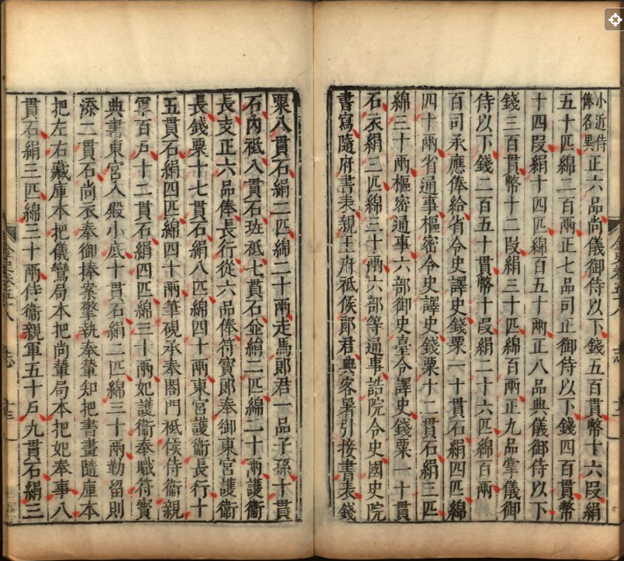 小近侍俸各異正六品尚儀御侍以下錢五百貫幣十六段絹
五十匹綿二百兩正七品司正御侍以下錢四百貫幣
十四段絹十四匹綿百五十兩正八品典儀御侍以下
錢三百貫幣十二段絹三十匹綿百兩正九品掌儀御
侍以下錢二百五十貫幣十段絹二十六匹綿百兩
百司承應俸給省令史譯史錢粟一十貫石絹四匹綿
四十兩省通事樞密令史譯史錢粟十二貫石絹三匹
綿三十兩樞密通事六部御史臺令譯史錢粟一十貫
石衣絹三匹綿三十兩六部等通事誥院令史國史院
書寫隨府書表親王府祗候郎君典客署引接書表錢
粟八貫石絹二匹綿二十兩走馬郎君一品子孫十貫
石內祗八貫石班祗七貫石並絹二匹綿二十兩護衛
長支正六品俸長行從六品俸符寶郎奉御東宮護衛
長錢粟十七貫石絹八匹綿四十兩東宮護衛長行十
五貫石絹四匹綿四十兩筆硯承奉閤門祗候侍衛親
軍百戶十二貫石絹四匹綿三十兩妃護衛奉職符寶
典書東宮入殿小底十貫石絹二匹綿三十兩勒留則
添二貫石尚衣奉御捧案擎執奉輦知把書畫隨庫本
把左右藏庫本把儀鸞局本把尚輦局本把妃奉事八
貫石絹三匹綿三十兩侍衛親軍五十戶九貫石絹三